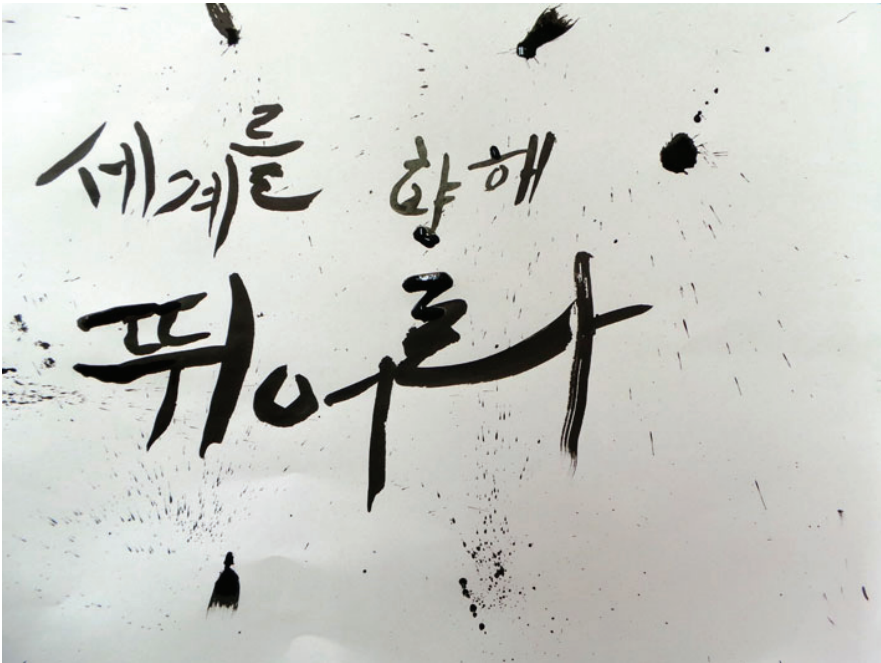 세계를 향해
뛰어라